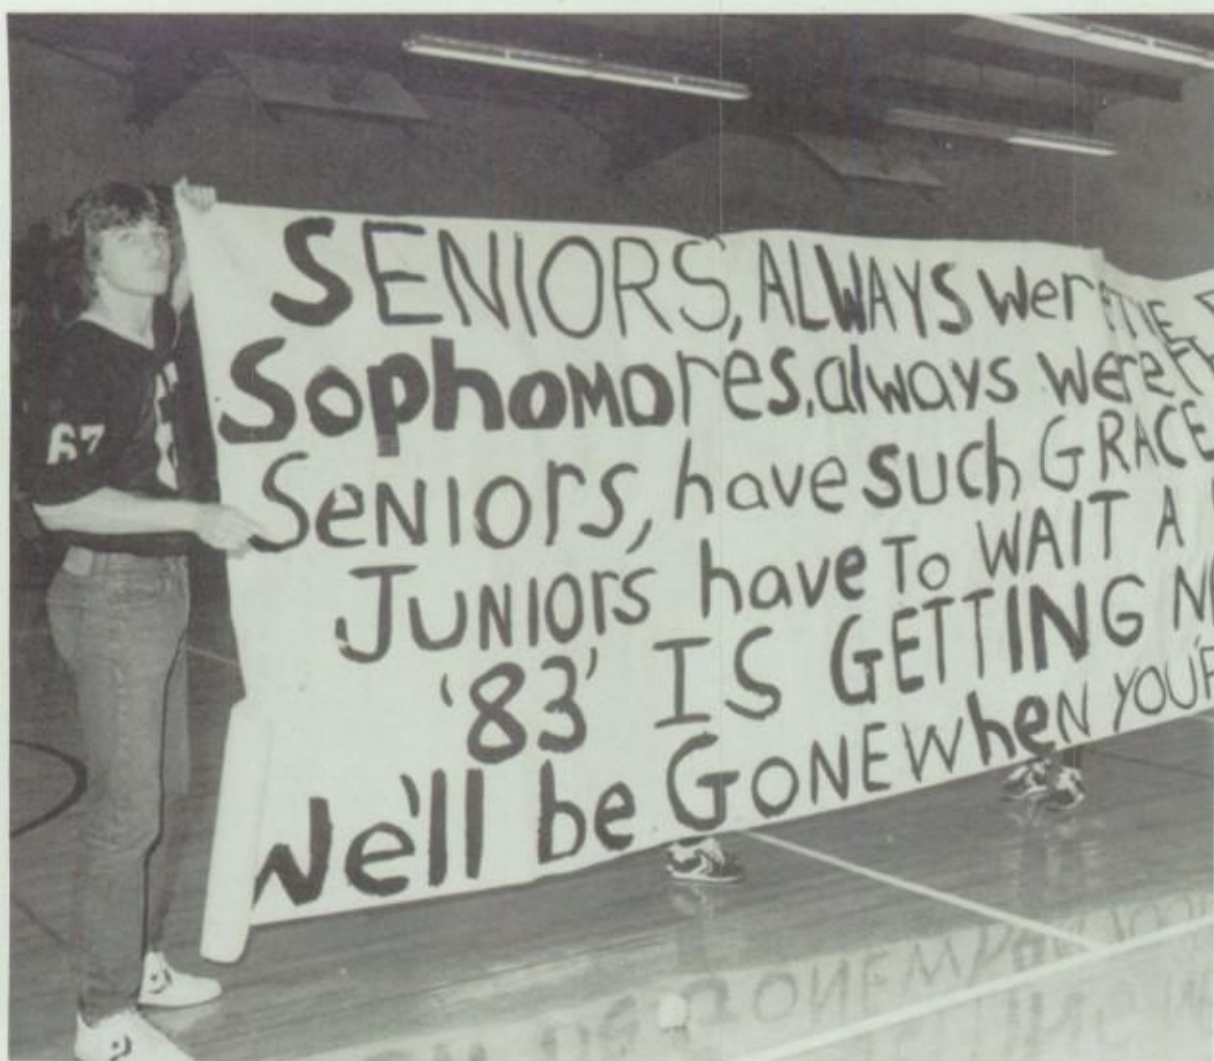 SENIORS, ALWAYS
Sophomores, always were
SeNIOrS, have SUCh GRACE
JUNIOrS have To WAIT A
'83' IS GETTING
We'll be GONE WheN
67